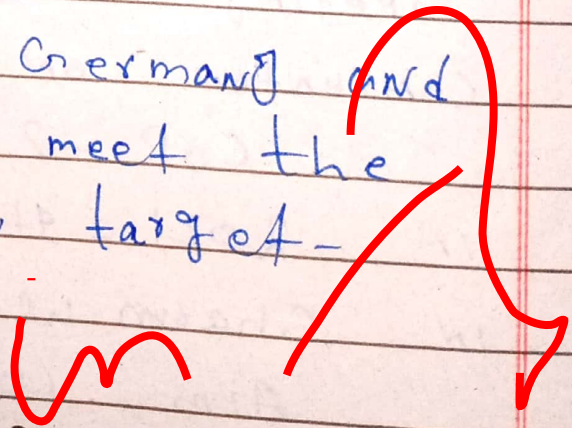 Germany and
meet the
target-